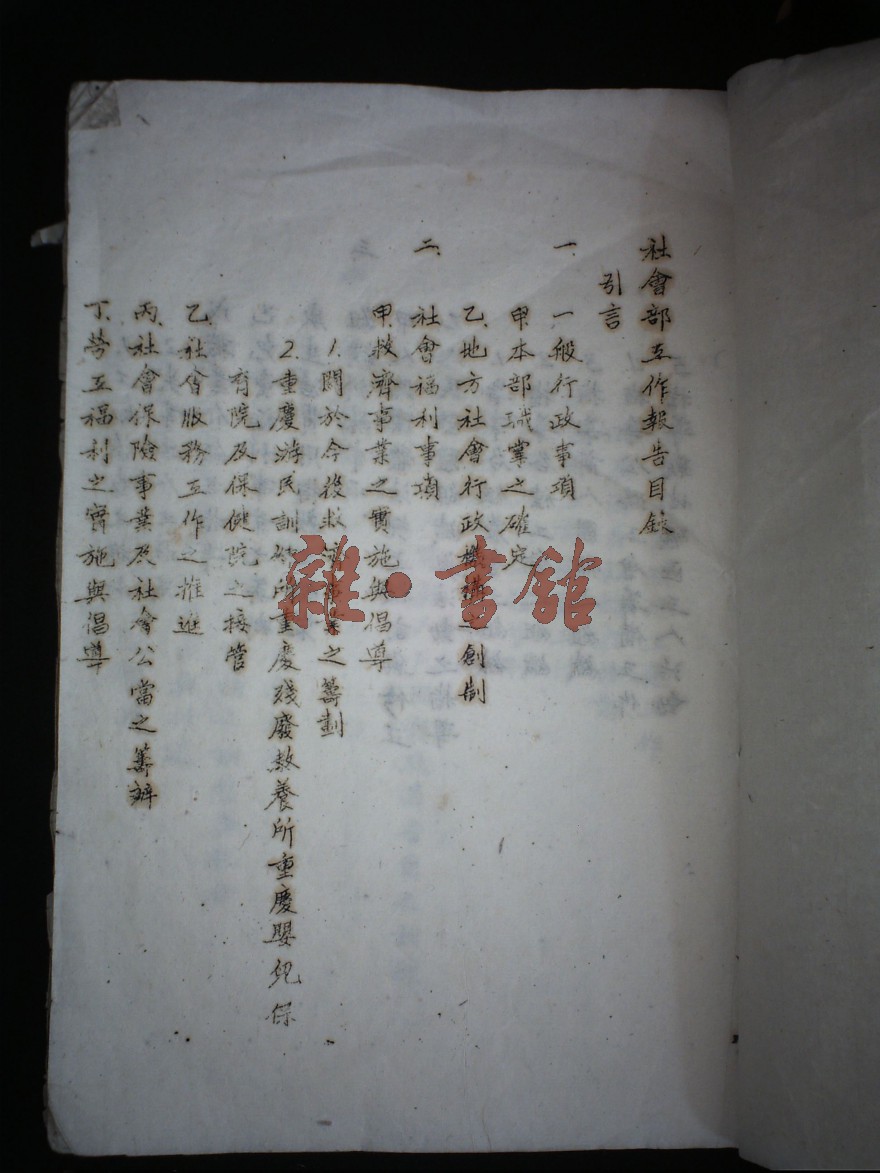 社會部工作報告目錄
引言
一、一般行政事項
甲、本部職掌之確定
乙、地方社會行政機構之創制
二、社會福利事項
甲、救濟事業之實施與倡導
1.關於今後救濟事業之籌劃
2.重慶游民訓練所重慶殘廢教養所重慶嬰兒保
育院及保健院之接管
乙、社會服務工作之推進
丙、社會保險事業及社會公當之籌辦
丁、勞工福利之實施與倡導
雜·書館